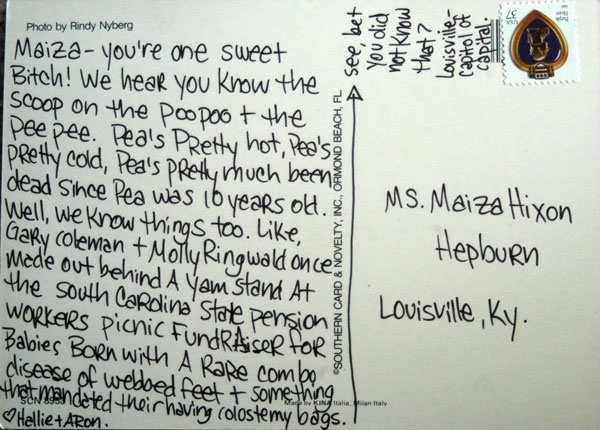 Photo by Rindy Nyberg
Maiza - you're one sweet
Bitch! We hear you know the
scoop on the poopoo + the
pee pee. Pea's Pretty hot, Pea's
pretty cold, Pea's pretty much been
dead since Pea was 10 years old.
Well, we know things too. Like,
Gary Coleman + Molly Ringwald once
made out behind A yam stand At
the South Carolina State pension
workers picnic FundRAiser for
Babies Born with A Rare combo
disease of webbed feet + something
that mandated their having colostemy bags.
♡ Hallie + ARon.
SCN 8953
Made by KINA Italia, Milan Italy
©SOUTHERN CARD & NOVELTY, INC., ORMOND BEACH, FL
see, bet
you did
not know
that?
Louisville-
capitol of
capital.
USA
37
Purple
Heart
Ms. Maiza Hixon
Hepburn
Louisville, Ky.